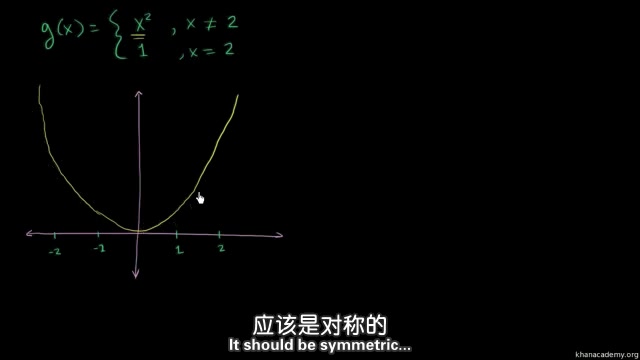 g(x) = { x² , x ≠ 2
1 , x = 2
-2 -1 1 2
应该是对称的
It should be symmetric...
khanacademy.org